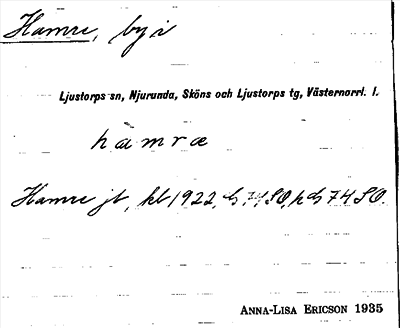 Hamre, by i
Ljustorps sn, Njurunda, Sköns och Ljustorps tg, Västernorrl. l.
hamræ
Hamre jt, kt 1922, 74 SO, 74 SO.
ANNA-LISA ERICSON 1935